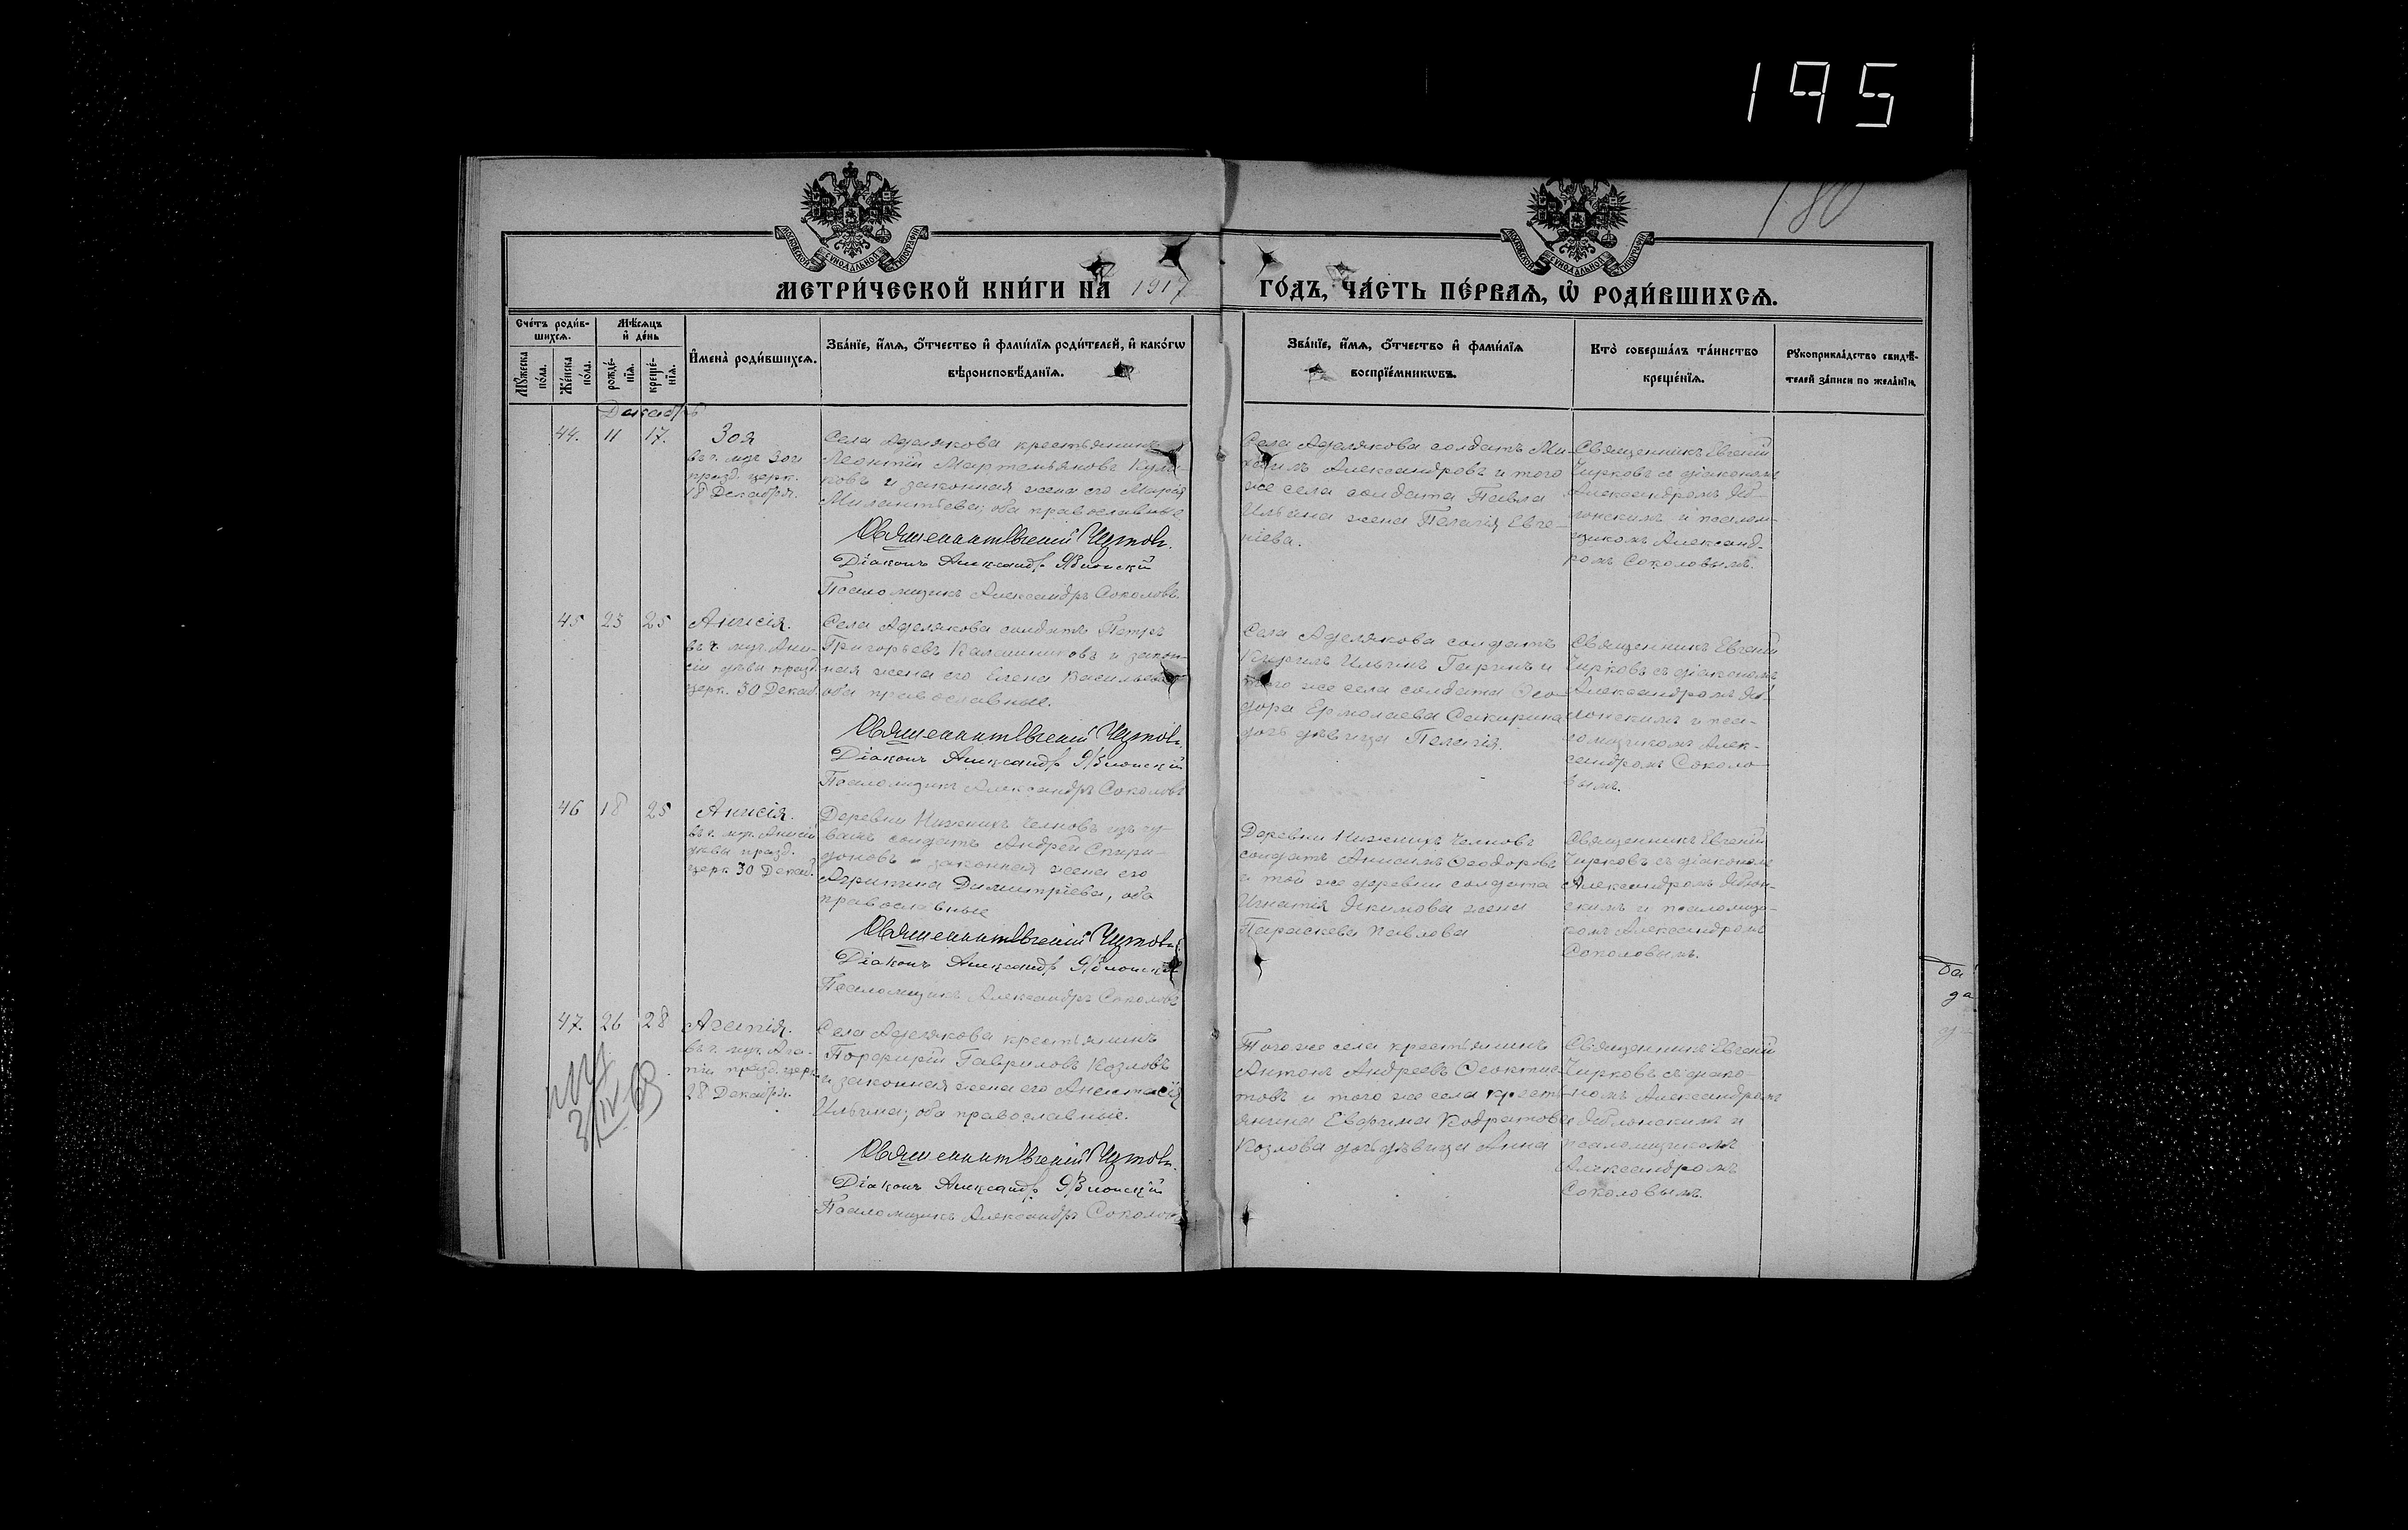 195
180
МОСКОВСКОЙ СѴНОДАЛЬНОЙ ТИПОГРАФІИ
МОСКОВСКОЙ СѴНОДАЛЬНОЙ ТИПОГРАФІИ
МЕТРИ́ЧЕСКОЙ КНИ́ГИ НА 1917 ГО́ДЪ, ЧА́СТЬ ПЕ́РВАѦ, Ѡ҆ РОДИ́ВШИХСѦ.
Сче́тъ роди́в-
шихсѧ.
Мꙋ́жеска по́ла.
Же́нска по́ла.
Мѣ́сѧцъ и҆ де́нь
рожде́-нїѧ.
креще́-нїѧ.
И҆мена̀ роди́вшихсѧ.
Зва́нїе, и҆́мѧ, ѻ҆́тчество и҆ фами́лїѧ роди́телей, и҆ како́гѡ
вѣроисповѣ́данїѧ.
Зва́нїе, и҆́мѧ, ѻ҆́тчество и҆ фами́лїѧ
воспрїе́мникѡвъ.
Кто̀ соверша́лъ та́инство
креще́нїѧ.
Рꙋкоприкла́дство свидѣ́-
телей за́писи по жела́нїю.
Декабрь
44. 11 17. Зоя
въ ч. муч. Зои
празд. церк.
18 Декабря.
Села Аделякова крестьянинъ
Леонтій Мартемьяновъ Кули-
ковъ и законная жена его Марія
Милентіева; оба православные
Священникъ Евгеній Чирковъ.
Діаконъ Александръ Яблонскій
Псаломщикъ Александръ Соколовъ.
Села Аделякова солдатъ Ми-
хаилъ Александровъ и того
же села солдата Павла
Ильина жена Пелагія Евге-
ніева.
Священникъ Евгеній
Чирковъ съ діакономъ
Александромъ Яб-
лонскимъ и псалом-
щикомъ Александ-
ромъ Соколовымъ.
45 23 25 Анисія.
въ ч. муч. Ани-
сіи дѣвы празд.
церк. 30 Декаб.
Села Аделякова солдатъ Петръ
Григорьевъ Калашниковъ и закон-
ная жена его Елена Васильева
оба православные.
Священникъ Евгеній Чирковъ.
Діаконъ Александръ Яблонскій
Псаломщикъ Александръ Соколовъ
Села Аделякова солдатъ
Кирилъ Ильинъ Гаринъ и
того же села солдата Ѳео-
дора Ермолаева Сакирина
дочь дѣвица Пелагія.
Священникъ Евгеній
Чирковъ съ діакономъ
Александромъ Яб-
лонскимъ и пса-
ломщикомъ Алек-
сандромъ Соколо-
вымъ.
46 18 25 Анисія.
въ ч. муч. Анисіи
дѣвы празд.
церк 30 Декаб.
Деревни Нижнихъ Челновъ изъ чу-
вашъ солдатъ Андрей Спири-
доновъ и законная жена его
Агрипина Димитріева, оба
православные
Священникъ Евгеній Чирковъ.
Діаконъ Александръ Яблонскій
Псаломщикъ Александръ Соколовъ
Деревни Нижнихъ Челновъ
солдатъ Анисимъ Ѳеодоровъ
и той же деревни солдата
Игнатія Якимова жена
Параскева Павлова
Священникъ Евгеній
Чирковъ съ діакономъ
Александромъ Яблон-
скимъ и псаломщи-
комъ Александромъ
Соколовымъ.
47. 26 28 Агапія.
въ ч. муч. Ага-
піи празд. церк
28 Декабря.
Села Аделякова крестьянинъ
Порфирій Гавриловъ Козловъ
и законная жена его Анастасія
Ильина; оба православные.
Священникъ Евгеній Чирковъ.
Діаконъ Александръ Яблонскій
Псаломщикъ Александръ Соколовъ
Того же села крестьянинъ
Антонъ Андреевъ Ѳеоктис-
товъ и того же села кресть-
янина Евфима Кодратова
Козлова дочь дѣвица Анна
Священникъ Евгеній
Чирковъ съ діако-
номъ Александромъ
Яблонскимъ и
псаломщикомъ
Александромъ
Соколовымъ.